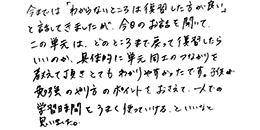 今までは「わからないところは復習した方が良い」
と話してきましたが、今日のお話を聞いて、
この単元は、どのところまで戻って復習したら
いいのか、具体的に単元同士のつながりを
教えて頂きとてもわかりやすかったです。子供が
勉強のやり方のポイントをおさえて、一人での
学習時間をうまく使っていける、といいなと
思いました。